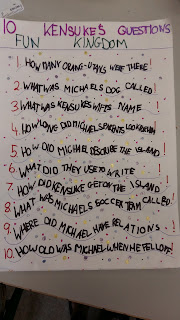 10 KENSUKE'S QUESTIONS
FUN KINGDOM
1. HOW MANY ORANG-UTANS WERE THERE!
2. WHAT WAS MICHAELS DOG CALLED!
3. WHAT WAS KENSUKES WIFES NAME!
4. HOW LONG DID MICHAELS PARENTS LOOK FOR HIM
5. HOW DID MICHAEL DESCRIBE THE ISLAND
6. WHAT DID THEY USE TO WRITE!
7. HOW DID KENSUKE GET ON THE ISLAND
8. WHAT WAS MICHAELS SOCCER TEAM CALLED!
9. WHERE DID MICHAEL HAVE RELATIONS!
10. HOW OLD WAS MICHAEL WHEN HE FELL OFF!